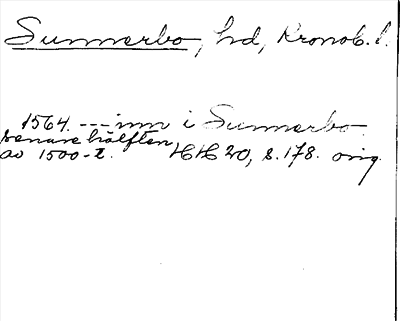 Sunnerbo, hd, Kronob. l.
1564. --- inn i Sunnerbo
senare hälften
av 1500-t. HH 20, s. 178. orig.